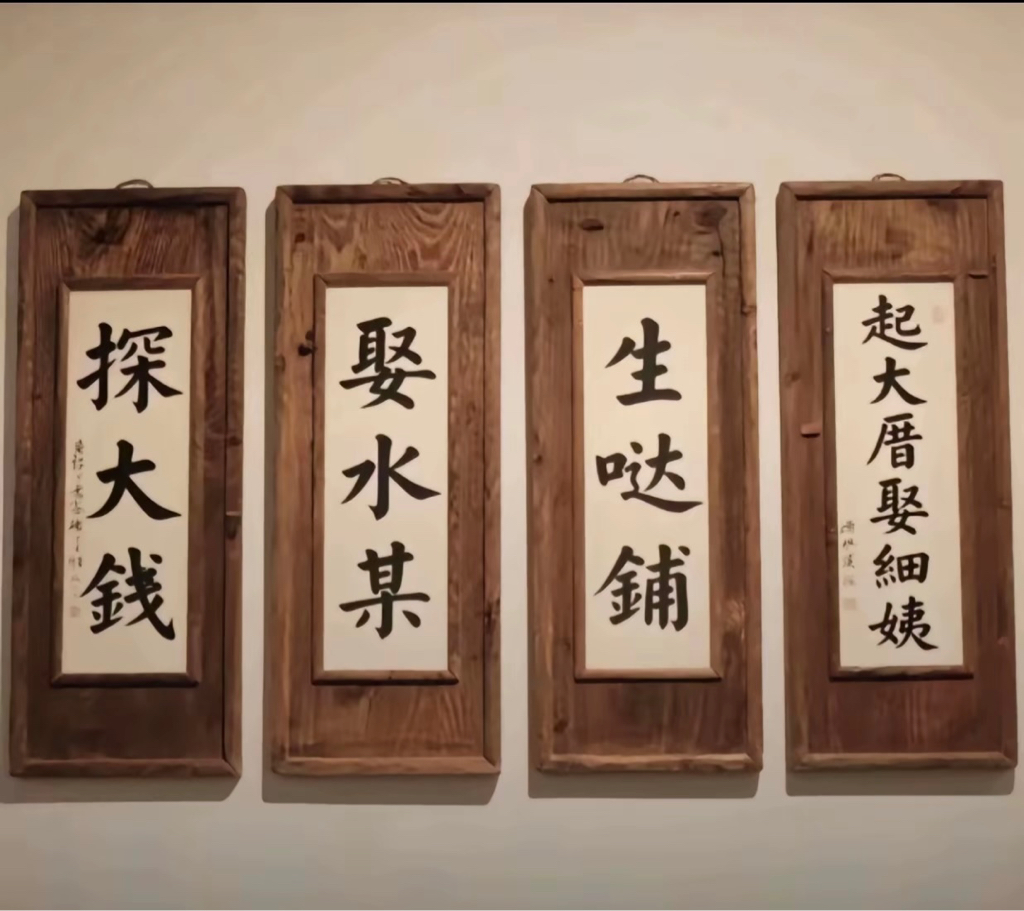 探大錢
娶水某
生哒鋪
起大厝娶細姨